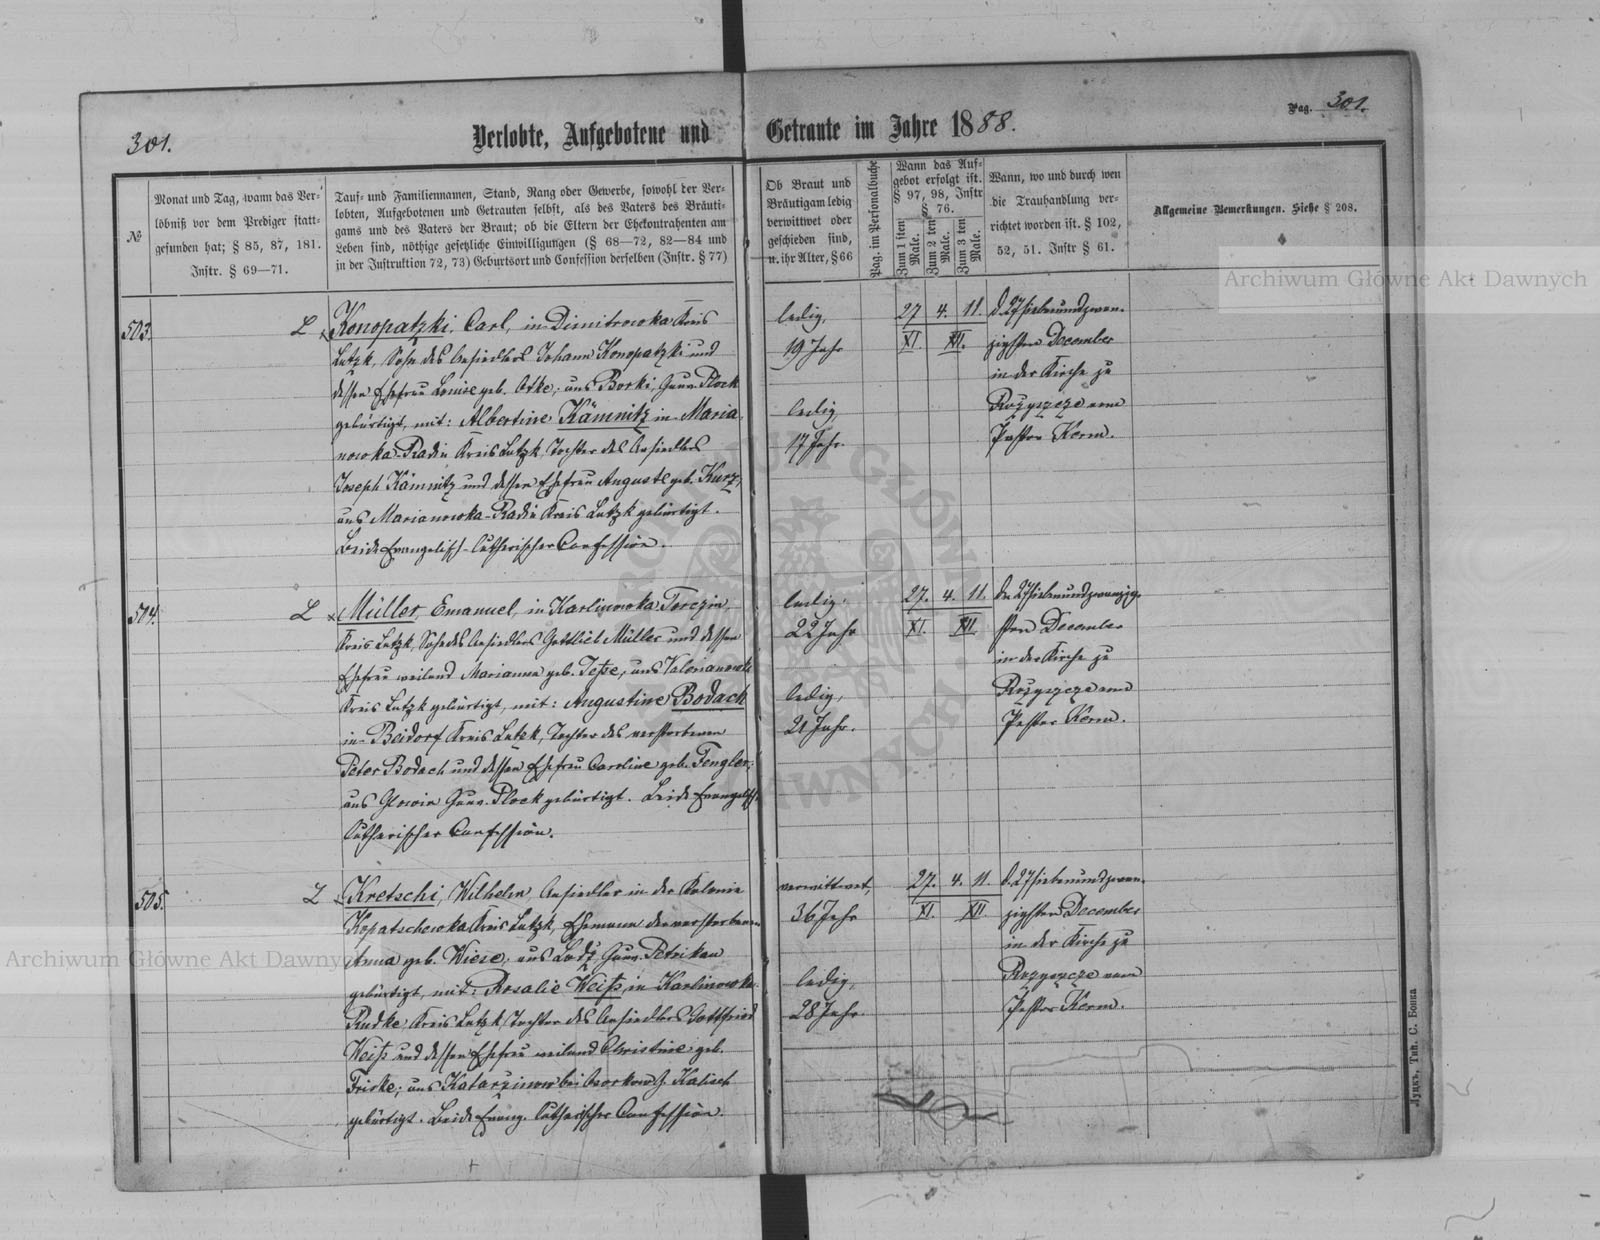 301.
Verlobte, Aufgebotene und Getraute im Jahre 1888.
Pag. 301.
№
Monat und Tag, wann das Ver-
löbniß vor dem Prediger statt-
gefunden hat; § 85, 87, 181.
Instr. § 69—71.
Tauf- und Familiennamen, Stand, Rang oder Gewerbe, sowohl der Ver-
lobten, Aufgebotenen und Getrauten selbst, als des Vaters des Bräuti-
gams und des Vaters der Braut; ob die Eltern der Ehekontrahenten am
Leben sind, nöthige gesetzliche Einwilligungen (§ 68—72, 82—84 und
in der Instruktion 72, 73) Geburtsort und Confession derselben (Instr. § 77)
Ob Braut und
Bräutigam ledig
verwittwet oder
geschieden sind,
u. ihr Alter, § 66
Pag. im Personalbuche
Wann das Auf-
gebot erfolgt ist.
§ 97, 98, Instr
§ 76.
Zum 1 sten
Male.
Zum 2 ten
Male.
Zum 3 ten
Male.
Wann, wo und durch wen
die Trauhandlung ver-
richtet worden ist. § 102,
52, 51. Instr § 61.
Allgemeine Bemerkungen. Siehe § 208.
503.
L x Konopatzki, Carl, in Dimitrowka Kreis
Lutzk, Sohn des Ansiedlers Johann Konopatzki und
dessen Ehefrau Louise geb. Otke; aus Borki, Guv. Plock
gebürtigt, mit: Albertine Kämnitz in Maria-
nowka-Radin Kreis Lutzk, Tochter des Ansiedlers
Joseph Kämnitz und dessen Ehefrau Auguste geb. Kurz,
aus Marianowka-Radin Kreis Lutzk gebürtigt.
Beide Evangelisch-Lutherischer Confession.
ledig,
19 Jahr
ledig
17 Jahr.
27 4. 11.
XI. XII.
d. 27 siebenundzwan-
zigsten December
in der Kirche zu
Rożyszcze vom
Pastor Kerm.
504.
L x Müller, Emanuel, in Karlinowka Torczin,
Kreis Lutzk, Sohn des Ansiedlers Gottlieb Müller und dessen
Ehefrau weiland Marianna geb. Teße, aus Valerianowka
Kreis Lutzk gebürtigt, mit: Augustine Bodach
in Beidorf Kreis Lutzk, Tochter des verstorbenen
Peter Bodach und dessen Ehefrau Caroline geb. Fengler,
aus Glowin Guv. Plock gebürtigt. Beide Evangelisch
Lutherischer Confession.
ledig,
22 Jahr
ledig,
21 Jahr.
27. 4. 11.
XI. XII.
Den 27 siebenundzwanzig-
sten December
in der Kirche zu
Rożyszcze vom
Pastor Kerm.
505.
L x Kretschi, Wilhelm Ansiedler in der Kolonie
Kopatschewka Kreis Lutzk, Ehemann der verstorbenen
Anna geb. Wiese, aus Lodz Guv. Petrikau
gebürtigt, mit: Rosalie Weiß, in Karlinowka-
Rudke Kreis Lutzk, Tochter des Ansiedlers Gottfried
Weiß und dessen Ehefrau weiland Christine geb.
Friske; aus Katarzinow bei Ozorkow G. Kalisch
gebürtigt. Beide Evang. Lutherischer Confession.
verwittwet,
36 Jahr
ledig,
28 Jahr.
27. 4. 11.
XI. XII.
d. 27 siebenundzwan-
zigsten December
in der Kirche zu
Rożyszcze vom
Pastor Kerm.
Луцкъ, Тип. С. Бонка
Archiwum Główne Akt Dawnych
Archiwum Główne Akt Dawnych